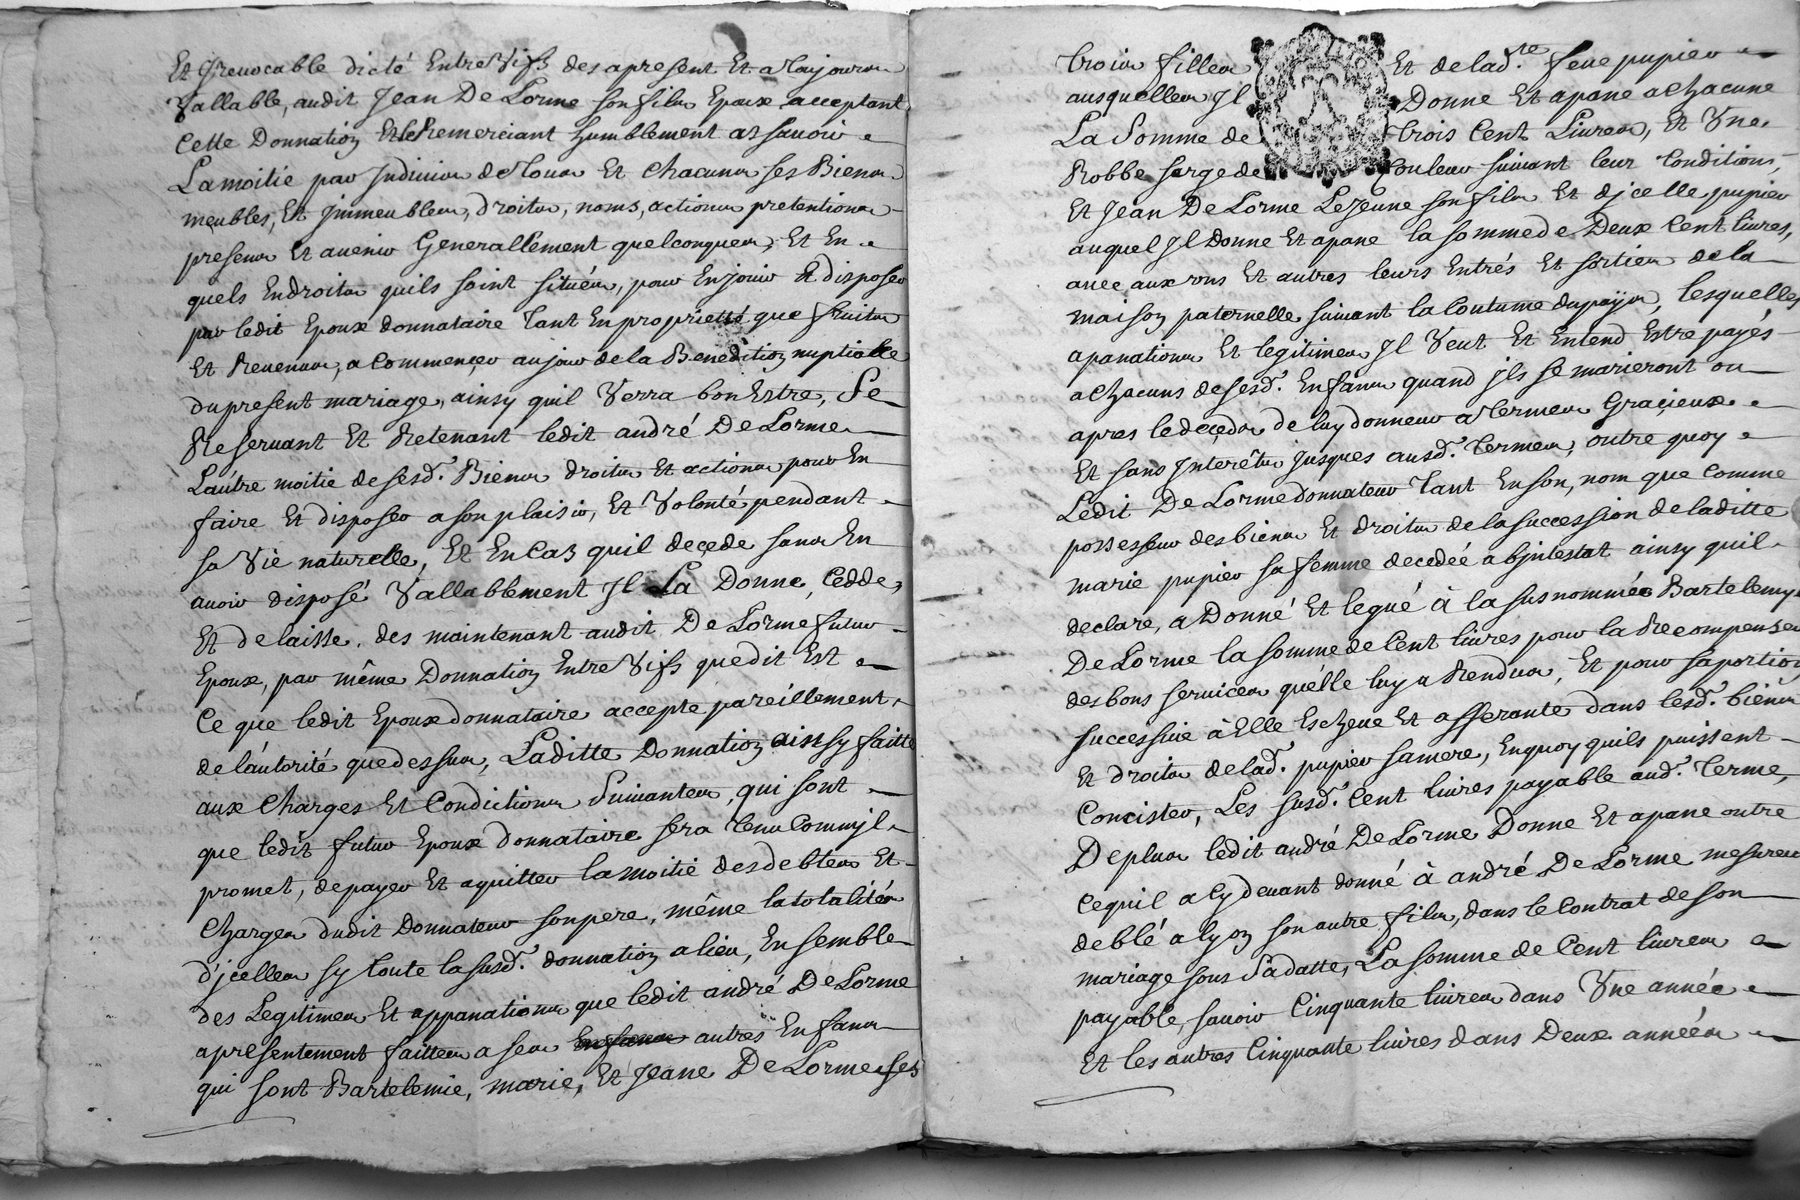 Et Jrevocable dicté Entre Vifs des apresent Et a Toujours
Vallable, audit Jean De Lorme son fils Epoux acceptant
Cette Donnation Et le Remerciant humblement at sauoir
La moitié par Indiuis de Tous Et Chacuns ses Biens
meubles, Et Jmmeubles, droits, noms, actions pretentions
presens Et auenir Generallement quelconques, Et En
quels Endroits quils soint situés, pour En jouir Et disposer
par ledit Epoux donnataire Tant En proprietté que fruits
Et Reuenus, a Commencer au jour de la Benediction nuptialle
du present mariage, ainsy quil Verra bon Estre, Se
Reseruant Et Retenant ledit andré De Lorme
L'autre moitié de sesd. Biens droits Et actions pour En
faire Et disposer a son plaisir, Et Volonté pendant
sa Vie naturelle, Et En Cas quil decede sans En
auoir disposé Vallablement Jl La Donne, Cedde,
Et delaisse, des maintenant audit De Lorme futur
Epoux, par même Donnation Entre Vifs que dit Est
Ce que ledit Epoux donnataire accepte pareillement,
de l'autorité que dessus, Laditte Donnation ainsy faitte
aux Charges Et Condictions Suiuantes, qui sont
que ledit futur Epoux donnataire sera tenu Comm'jl
promet, de payer Et aquitter la moitié des debtes Et
Charges dudit Donnateur son pere, même la totalités
d'jcelles sy toute la susd. donnation a lieu, Ensemble
des Legitimes Et appanations que ledit andré De Lorme
a presentement faittes a ses Enfans autres Enfans
qui sont Bartelemie, marie, Et Jeane De Lorme ses
trois filles Et de lad.te feue pupier
ausquelles Jl Donne Et apane a Chacune
La Somme de trois Cent Liures, Et Vne
Robbe sarge de Couleur suiuant leur Conditions,
Et Jean De Lorme Le Jeune son fils Et d'jcelle pupier
auquel Jl Donne Et apane la somme de Deux Cent liures,
auec aux rons Et autres leurs Entrés Et sorties de la
maison paternelle suiuant la Coutume du païs, lesquelles
apanations Et legitimes Jl Veut Et Entend Estre payés
a Chacuns de sesd. Enfans quand jls se marieront ou
apres le deçeds de luy donneur a Termes Graçieux
Et sans Jnterêts jusques ausd. Termes, outre quoy
Ledit De Lorme donnateur Tant En son, nom que Comme
possesseur des biens Et droits de la succession de laditte
marie pupier sa femme decedéé abjntestat ainsy quil
declare, a Donné Et legué à la sus nommée Bartelemye
De Lorme la somme de Cent liures pour la Recompenser
des bons seruices qu'elle luy a Rendus, Et pour sa portion
successiue à Elle Escheue Et afferante dans lesd. biens
Et droits de lad. pupier sa mere, En quoy quils puissent
Concister, Les susd. Cent liures payable aud. Terme,
De plus ledit andré De Lorme Donne Et apane outre
Ce quil a Cy deuant donné à andré De Lorme mesureur
de blé a lyon son autre fils, dans le Contrat de son
mariage sous Sa datte, La somme de Cent liures
payable, sauoir Cinquante liures dans Vne année
Et les autres Cinquante liures dans Deux années